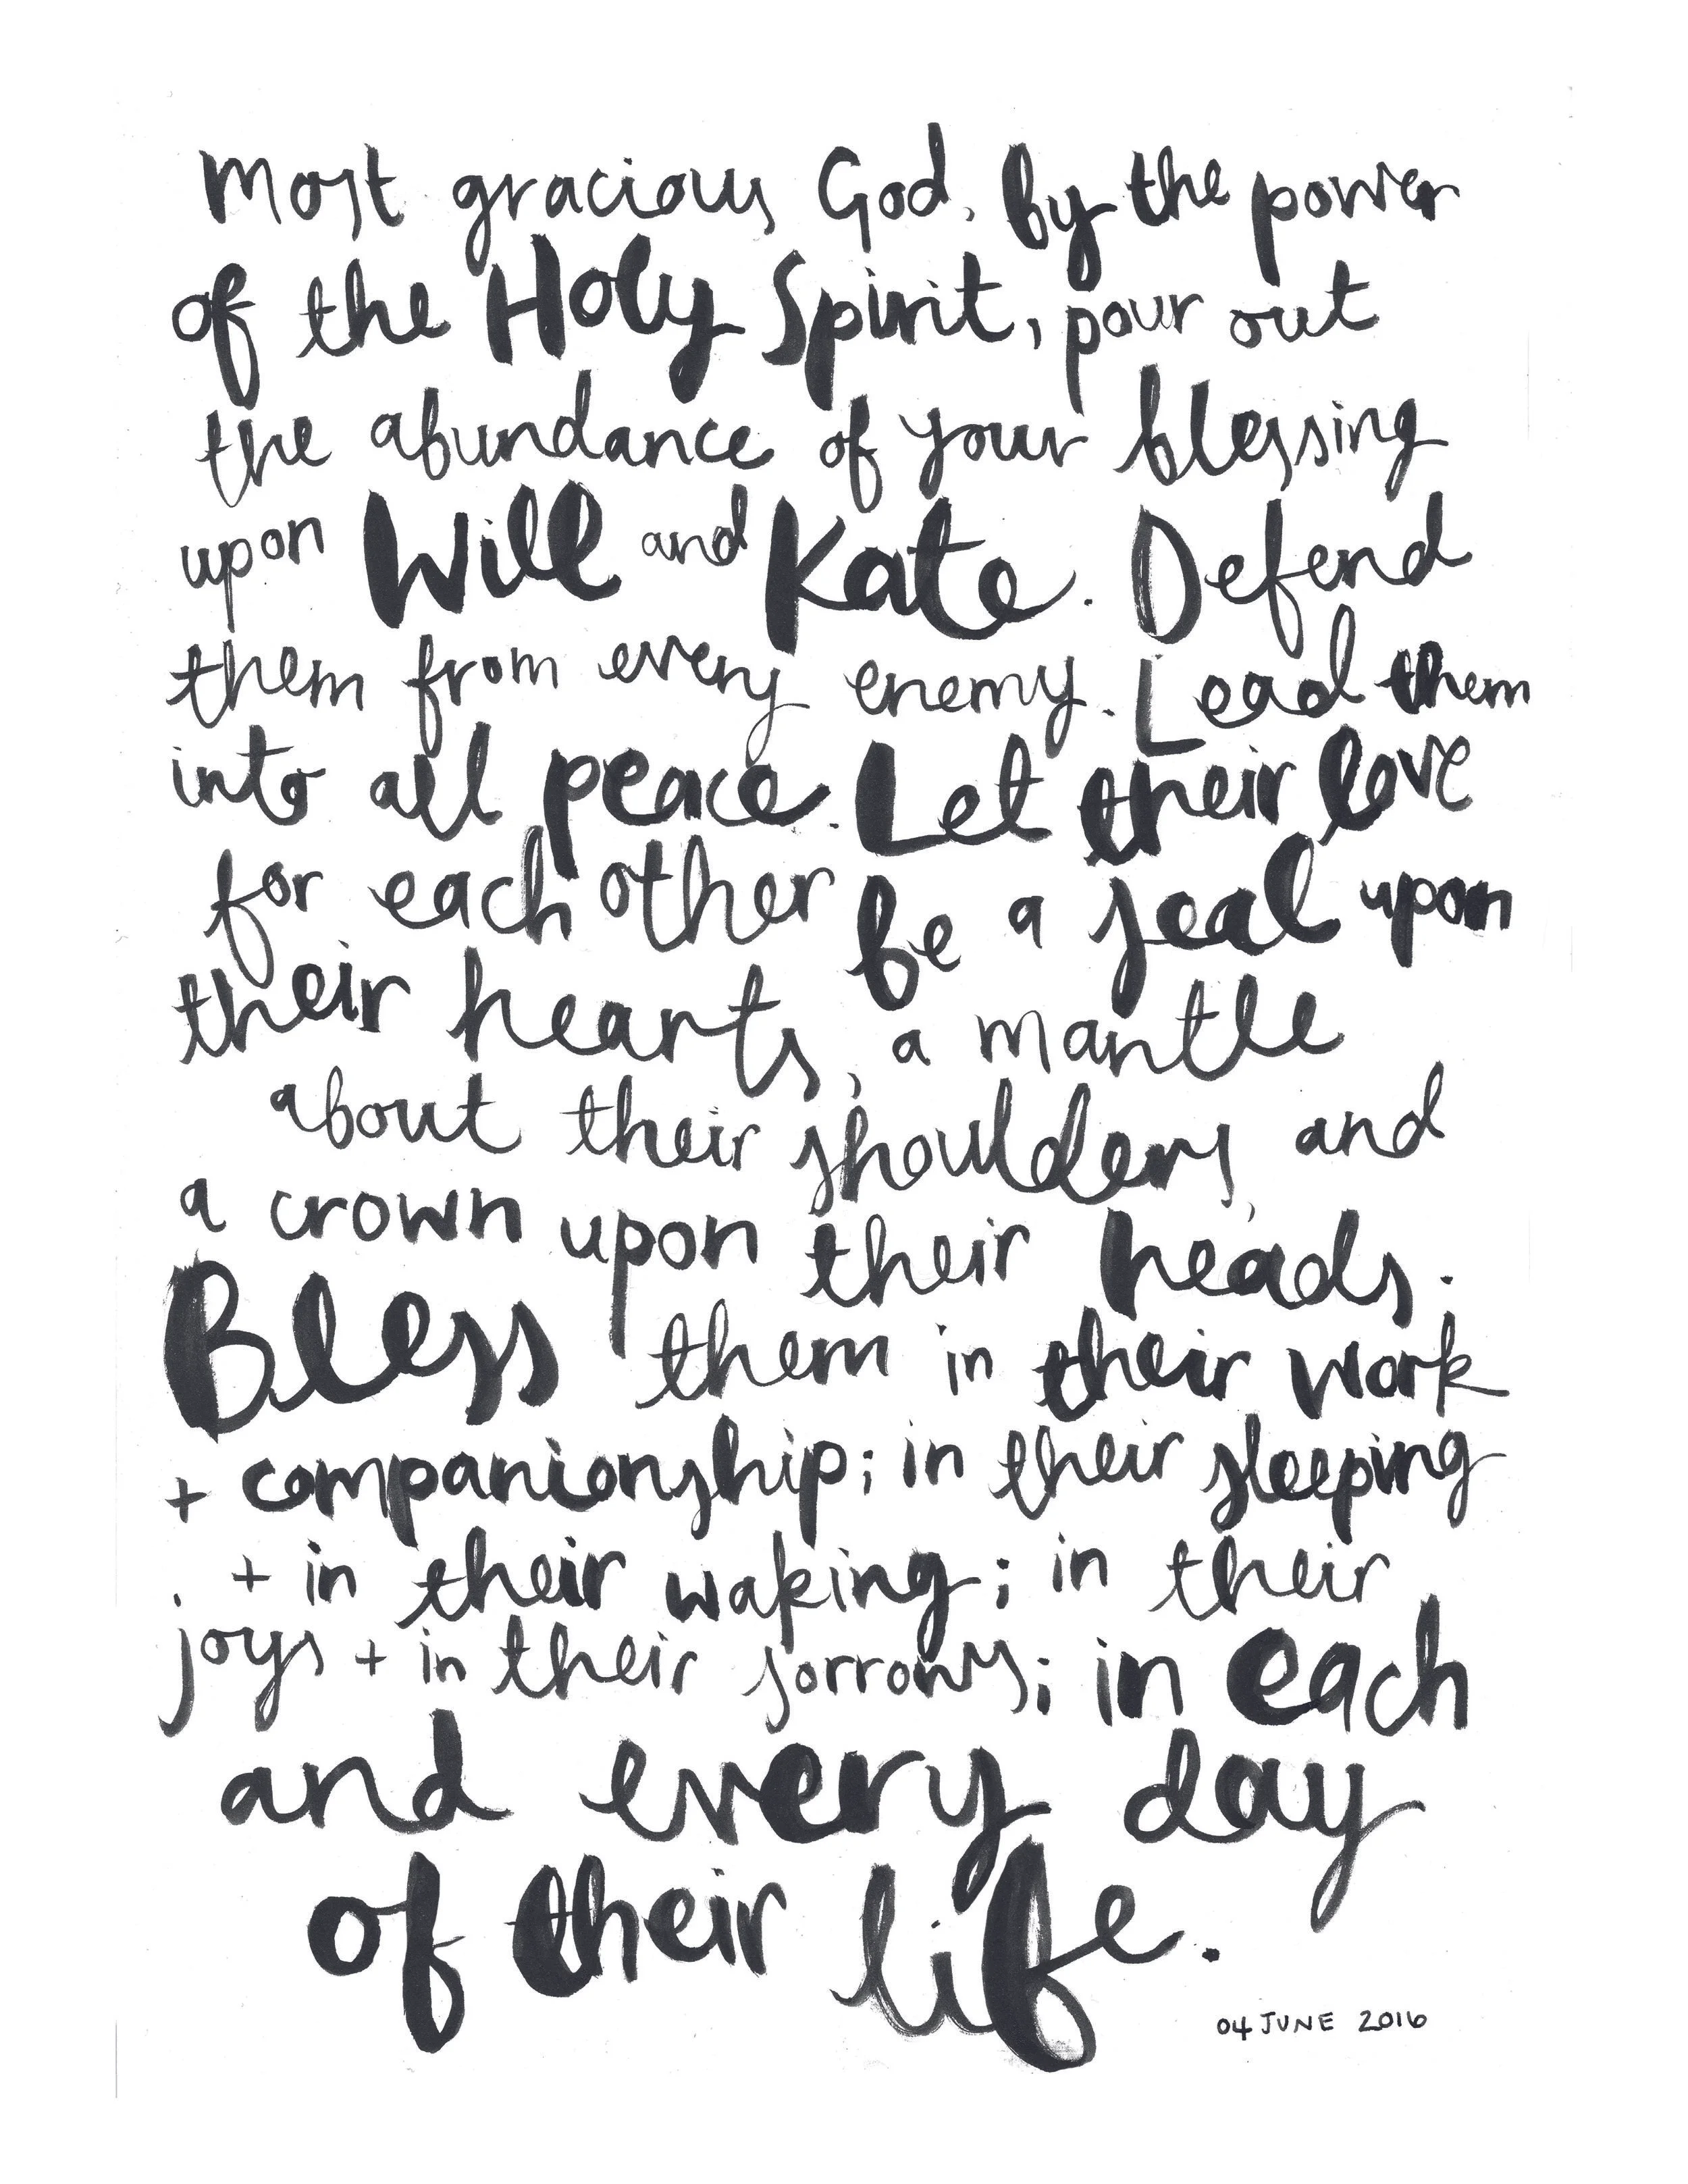 Most gracious God, by the power
of the Holy Spirit, pour out
the abundance of your blessing
upon Will and Kate. Defend
them from every enemy. Lead them
into all peace. Let their love
for each other be a seal upon
their hearts, a mantle
about their shoulders, and
a crown upon their heads.
Bless them in their work
+ companionship; in their sleeping
+ in their waking; in their
joys + in their sorrows; in each
and every day
of their life.
04 JUNE 2016